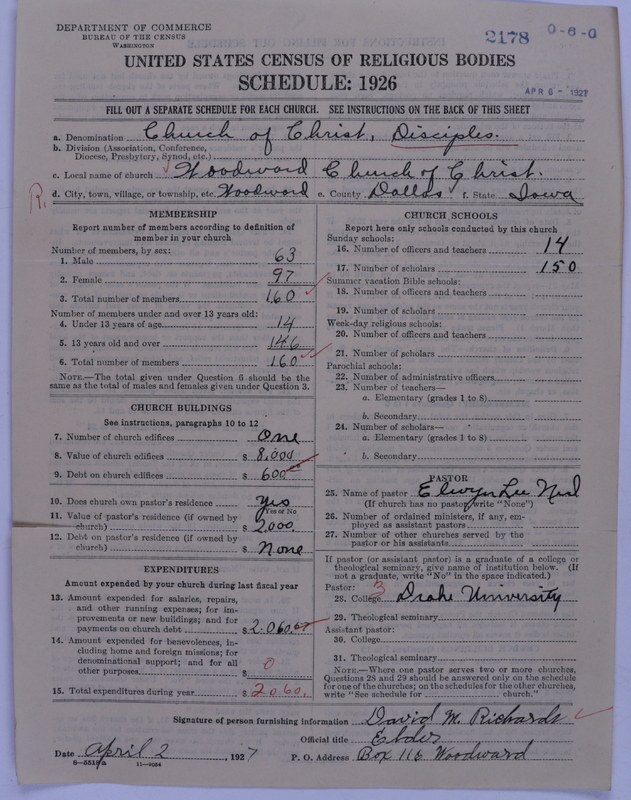 DEPARTMENT OF COMMERCE
BUREAU OF THE CENSUS
WASHINGTON
2178 0-6-0
UNITED STATES CENSUS OF RELIGIOUS BODIES
SCHEDULE: 1926
APR 6 - 1927
FILL OUT A SEPARATE SCHEDULE FOR EACH CHURCH. SEE INSTRUCTIONS ON THE BACK OF THIS SHEET
a. Denomination Church of Christ, Disciples.
b. Division (Association, Conference,
Diocese, Presbytery, Synod, etc.)
c. Local name of church Woodward Church of Christ.
R. d. City, town, village, or township, etc. Woodward e. County Dallas f. State Iowa
MEMBERSHIP
Report number of members according to definition of
member in your church
Number of members, by sex:
1. Male 63
2. Female 97
3. Total number of members 160
Number of members under and over 13 years old:
4. Under 13 years of age 14
5. 13 years old and over 146
6. Total number of members 160
NOTE.—The total given under Question 6 should be the
same as the total of males and females given under Question 3.
CHURCH BUILDINGS
See instructions, paragraphs 10 to 12
7. Number of church edifices One
8. Value of church edifices $ 8,000
9. Debt on church edifices $ 600
10. Does church own pastor's residence Yes
Yes or No
11. Value of pastor's residence (if owned by
church) $ 2,000.
12. Debt on pastor's residence (if owned by
church) $ None
EXPENDITURES
Amount expended by your church during last fiscal year
13. Amount expended for salaries, repairs,
and other running expenses; for im-
provements or new buildings; and for
payments on church debt $ 2,060.67
14. Amount expended for benevolences, in-
cluding home and foreign missions; for
denominational support; and for all
other purposes $ 0
15. Total expenditures during year $ 2060.
CHURCH SCHOOLS
Report here only schools conducted by this church
Sunday schools:
16. Number of officers and teachers 14
17. Number of scholars 150
Summer vacation Bible schools:
18. Number of officers and teachers
19. Number of scholars
Week-day religious schools:
20. Number of officers and teachers
21. Number of scholars
Parochial schools:
22. Number of administrative officers
23. Number of teachers—
a. Elementary (grades 1 to 8)
b. Secondary
24. Number of scholars—
a. Elementary (grades 1 to 8)
b. Secondary
PASTOR
25. Name of pastor Elwyn Lee
(If church has no pastor, write "None")
26. Number of ordained ministers, if any, em-
ployed as assistant pastors
27. Number of other churches served by the
pastor or his assistants
If pastor (or assistant pastor) is a graduate of a college or
theological seminary, give name of institution below. (If
not a graduate, write "No" in the space indicated.)
Pastor:
28. College 3 Drake University
29. Theological seminary
Assistant pastor:
30. College
31. Theological seminary
NOTE.—Where one pastor serves two or more churches,
Questions 28 and 29 should be answered only on the schedule
for one of the churches; on the schedules for the other churches,
write "See schedule for church."
Signature of person furnishing information David M. Richards
Official title Elder
Date April 2 1927 P. O. Address Box 116 Woodward
8—5518a 11—9034